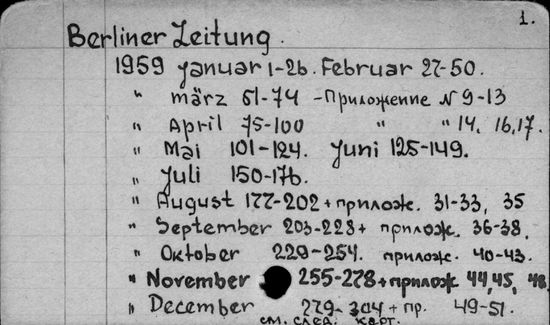 1.
Berliner Zeitung.
1959 Januar 1-26. Februar 27-50.
" März 51-74 - Приложение N 9-13
" April 75-100 " " 14, 16, 17.
" Mai 101-124. Juni 125-149.
" Juli 150-176.
" August 177-202 + прилож. 31-33, 35
" September 203-228 + прилож. 36-38.
" Oktober 229-254. прилож. 40-43.
" November 255-278 + прилож 44, 45, 48
" December 279-304 + пр. 49-51.
см. след. карт.